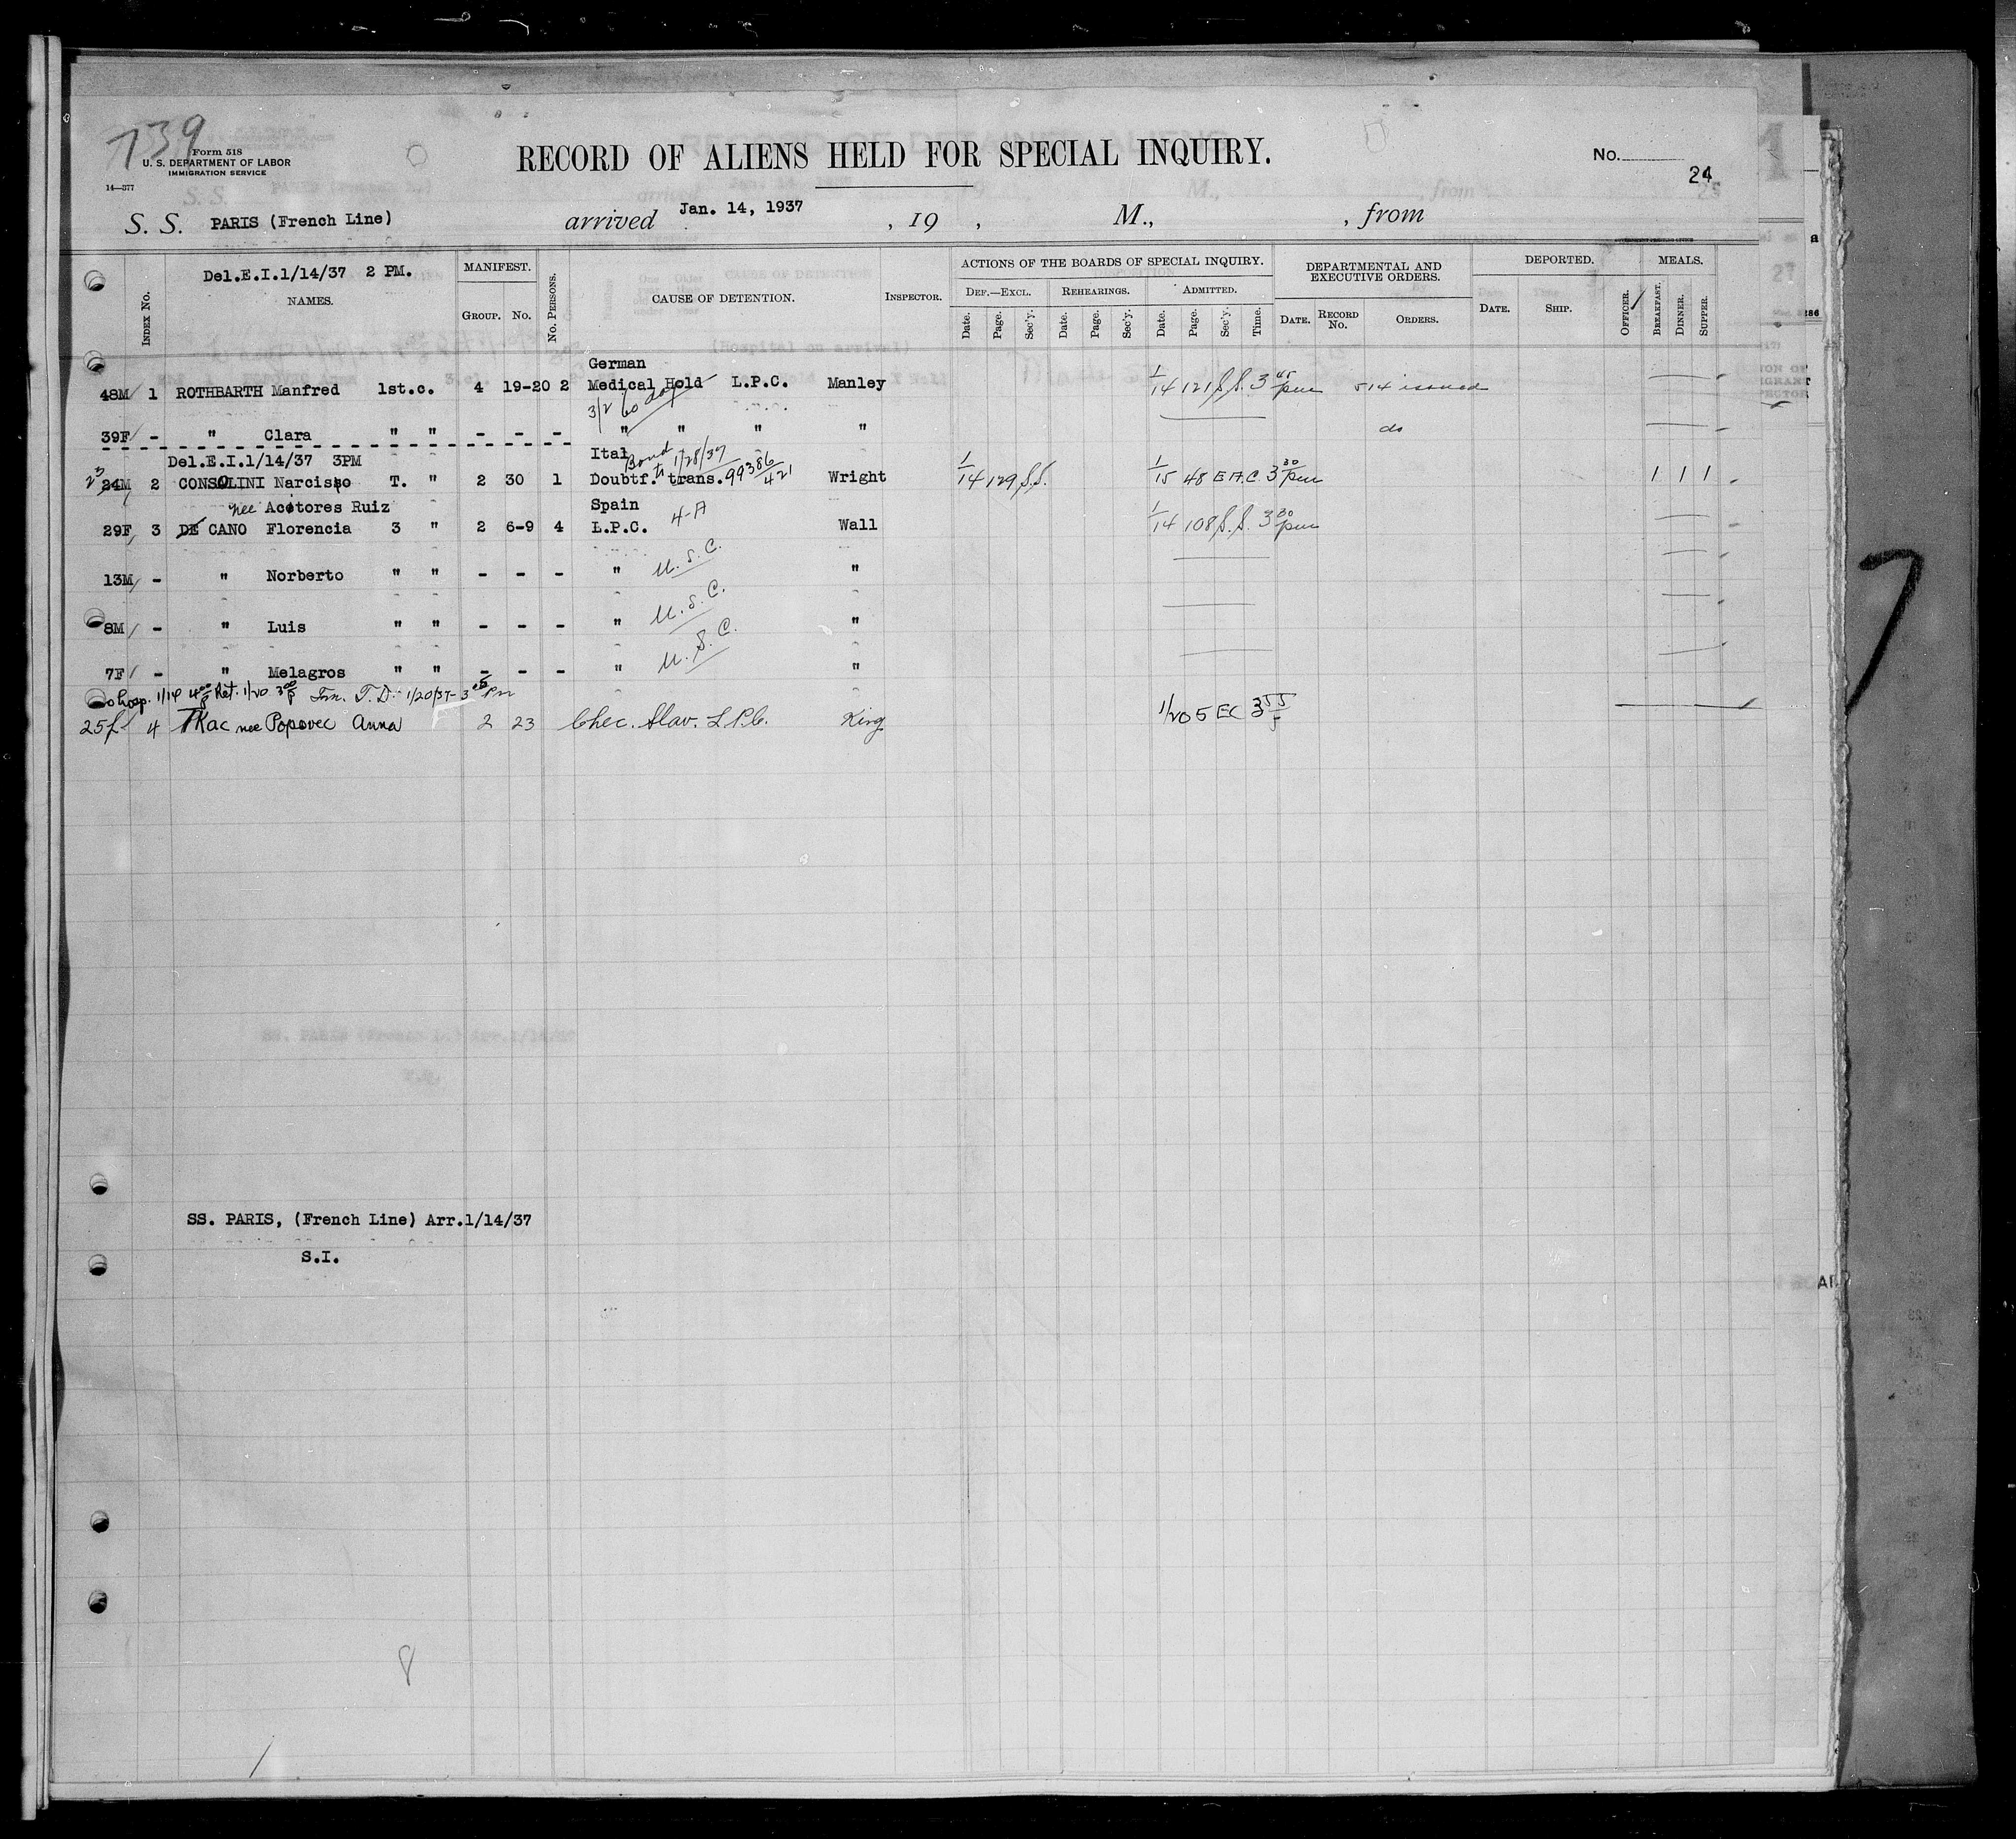 739
Form 518
U. S. DEPARTMENT OF LABOR
IMMIGRATION SERVICE
14—377
RECORD OF ALIENS HELD FOR SPECIAL INQUIRY.
No.
24
S. S. PARIS (French Line) arrived Jan. 14, 1937 , 19 , M., , from
INDEX No. Del.E.I.1/14/37 2 PM. NAMES. MANIFEST. GROUP. No. No. PERSONS. CAUSE OF DETENTION. INSPECTOR. ACTIONS OF THE BOARDS OF SPECIAL INQUIRY. DEF.—EXCL. Date. Page. Sec'y. REHEARINGS. Date. Page. Sec'y. ADMITTED. Date. Page. Sec'y. Time. DEPARTMENTAL AND EXECUTIVE ORDERS. DATE. RECORD No. ORDERS. DEPORTED. DATE. SHIP. OFFICER. MEALS. BREAKFAST. DINNER. SUPPER.
German
48M 1 ROTHBARTH Manfred 1st.c. 4 19-20 2 Medical Hold L.P.C. Manley 1/14 121 S.S. 3 45 pm 514 issued
3/2 60 day
39F - " Clara " " - - - " " " " do
Del.E.I.1/14/37 3PM Ital
Bond to 1/28/37
24M 2 CONSOLINI Narcisso T. " 2 30 1 Doubtf. trans. 99386/421 Wright 1/14 129 S.S. 1/15 48 E.A.C. 3 30 pm 1 1 1
nee Acitores Ruiz Spain
29F 3 DE CANO Florencia 3 " 2 6-9 4 L.P.C. 4-A Wall 1/14 108 S.S. 3 30 pm
13M - " Norberto " " - - - " U.S.C. "
8M - " Luis " " - - - " U.S.C. "
7F - " Melagros " " - - - " U.S.C. "
Hosp. 1/14 4 00 P Ret. 1/20 3 00 P Trn. T.D. 1/20/37- 3 05 Pm
25f 4 TKac nee Popovec Anna 2 23 Chec. Slav. L.P.C. King 1/20 5 EC 3 55
SS. PARIS, (French Line) Arr.1/14/37
S.I.
8
7